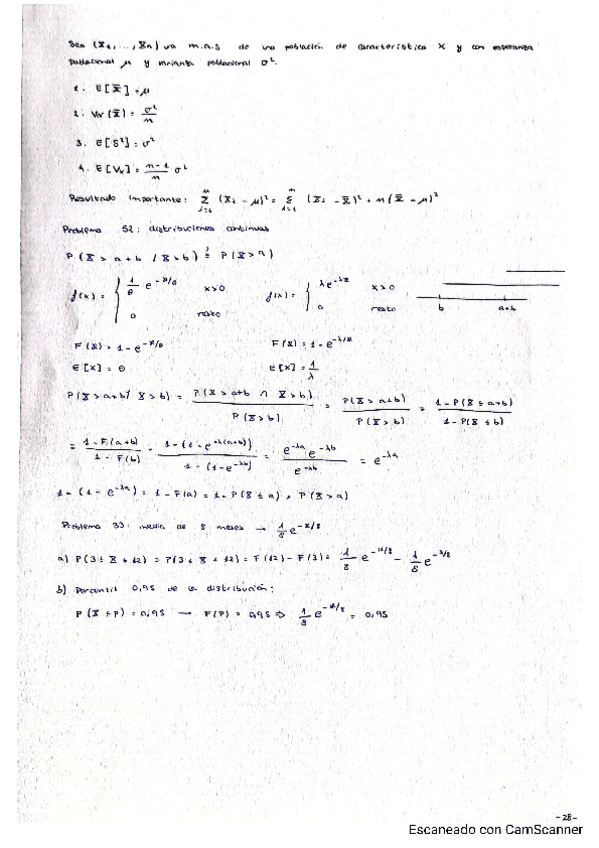 Sea (X₁, ..., Xn) una m.a.s de una población de característica X y con esperanza
poblacional μ y varianza poblacional σ².
1. E[X̄] = μ
2. Var(X̄) = σ²/n
3. E[S²] = σ²
4. E[Vx] = (n-1)/n σ²
Resultado importante: Σ (Xi - μ)² = Σ (Xi - X̄)² + n(X̄ - μ)²
Problema 52: distribuciones continuas
P(X > a+b / X > b) ≟ P(X > a)
f(x) = { 1/θ e^(-x/θ) x>0 f(x) = { λe^(-λx) x>0
0 resto 0 resto b a+b
F(X) = 1 - e^(-x/θ) F(X) = 1 - e^(-λx)
E[X] = θ E[X] = 1/λ
P(X > a+b / X > b) = P(X > a+b ∩ X > b) / P(X > b) = P(X > a+b) / P(X > b) = 1 - P(X ≤ a+b) / 1 - P(X ≤ b)
= 1 - F(a+b) / 1 - F(b) = 1 - (1 - e^(-λ(a+b))) / 1 - (1 - e^(-λb)) = e^(-λa) e^(-λb) / e^(-λb) = e^(-λa)
1 - (1 - e^(-λa)) = 1 - F(a) = 1 - P(X ≤ a) = P(X > a)
Problema 33: media de 8 meses → 1/8 e^(-x/8)
a) P(3 ≤ X ≤ 12) = P(3 < X ≤ 12) = F(12) - F(3) = 1/8 e^(-12/8) - 1/8 e^(-3/8)
b) Percentil 0,95 de la distribución:
P(X ≤ P) = 0,95 → F(P) = 0,95 ⇒ 1/8 e^(-x/8) = 0,95
- 28 -
Escaneado con CamScanner